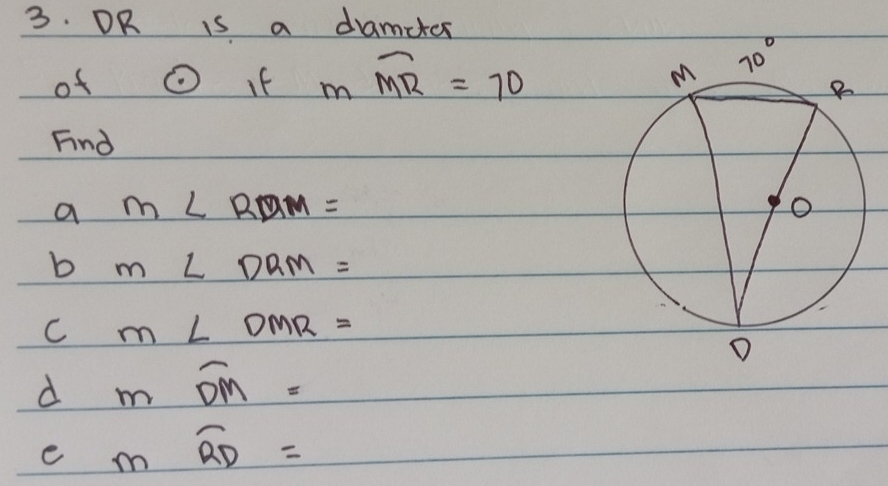 3. DR is a diameter
of ⊙ if m M͡R = 70
Find
a m ∠ RDM =
b m ∠ DRM =
c m ∠ DMR =
d m D͡M =
e m R͡D =
M
70°
R
O
D